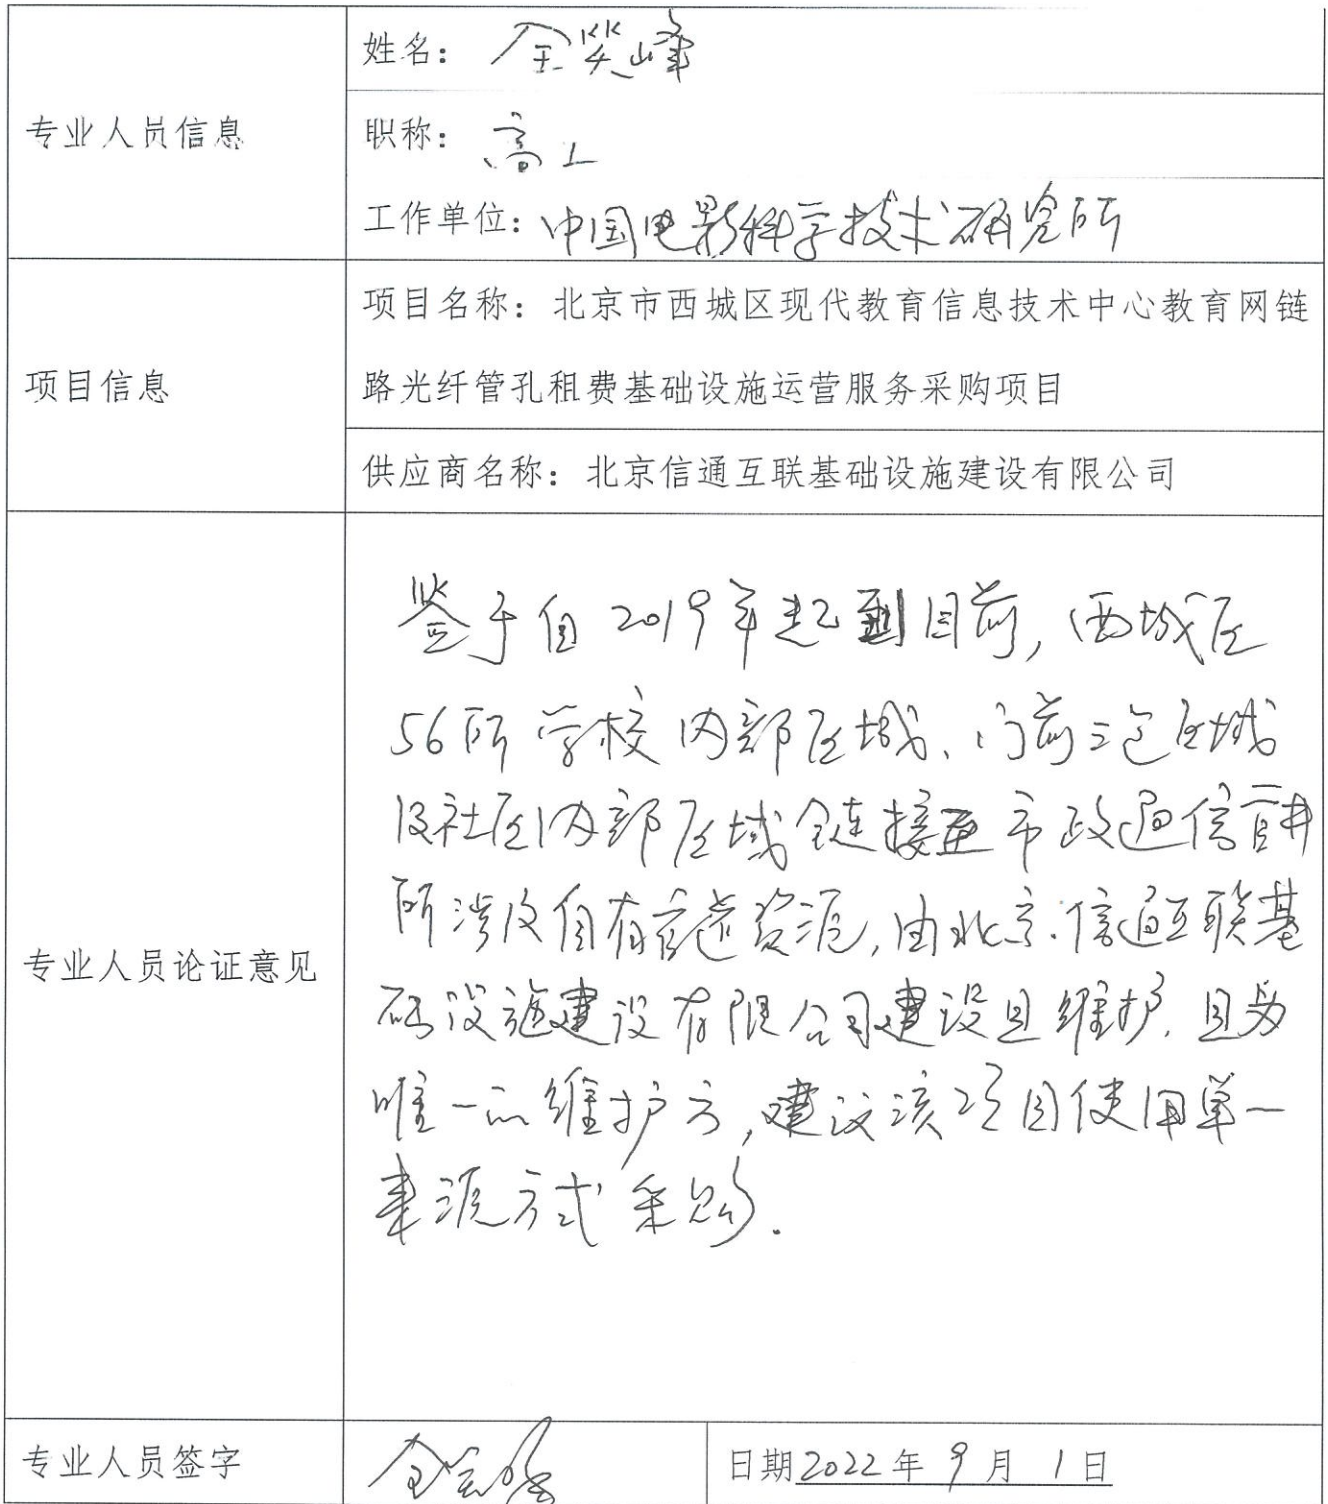 专业人员信息
姓名：全笑峰
职称：高工
工作单位：中国电影科学技术研究所
项目信息
项目名称：北京市西城区现代教育信息技术中心教育网链
路光纤管孔租费基础设施运营服务采购项目
供应商名称：北京信通互联基础设施建设有限公司
专业人员论证意见
鉴于自2019年起到目前，西城区
56所学校内部区域、门前三包区域
及社区内部区域链接至市政通信管井
所涉及自有管道资源，由北京信通互联基
础设施建设有限公司建设且维护，且为
唯一的维护方，建议该项目使用单一
来源方式采购.
专业人员签字
日期2022年9月1日